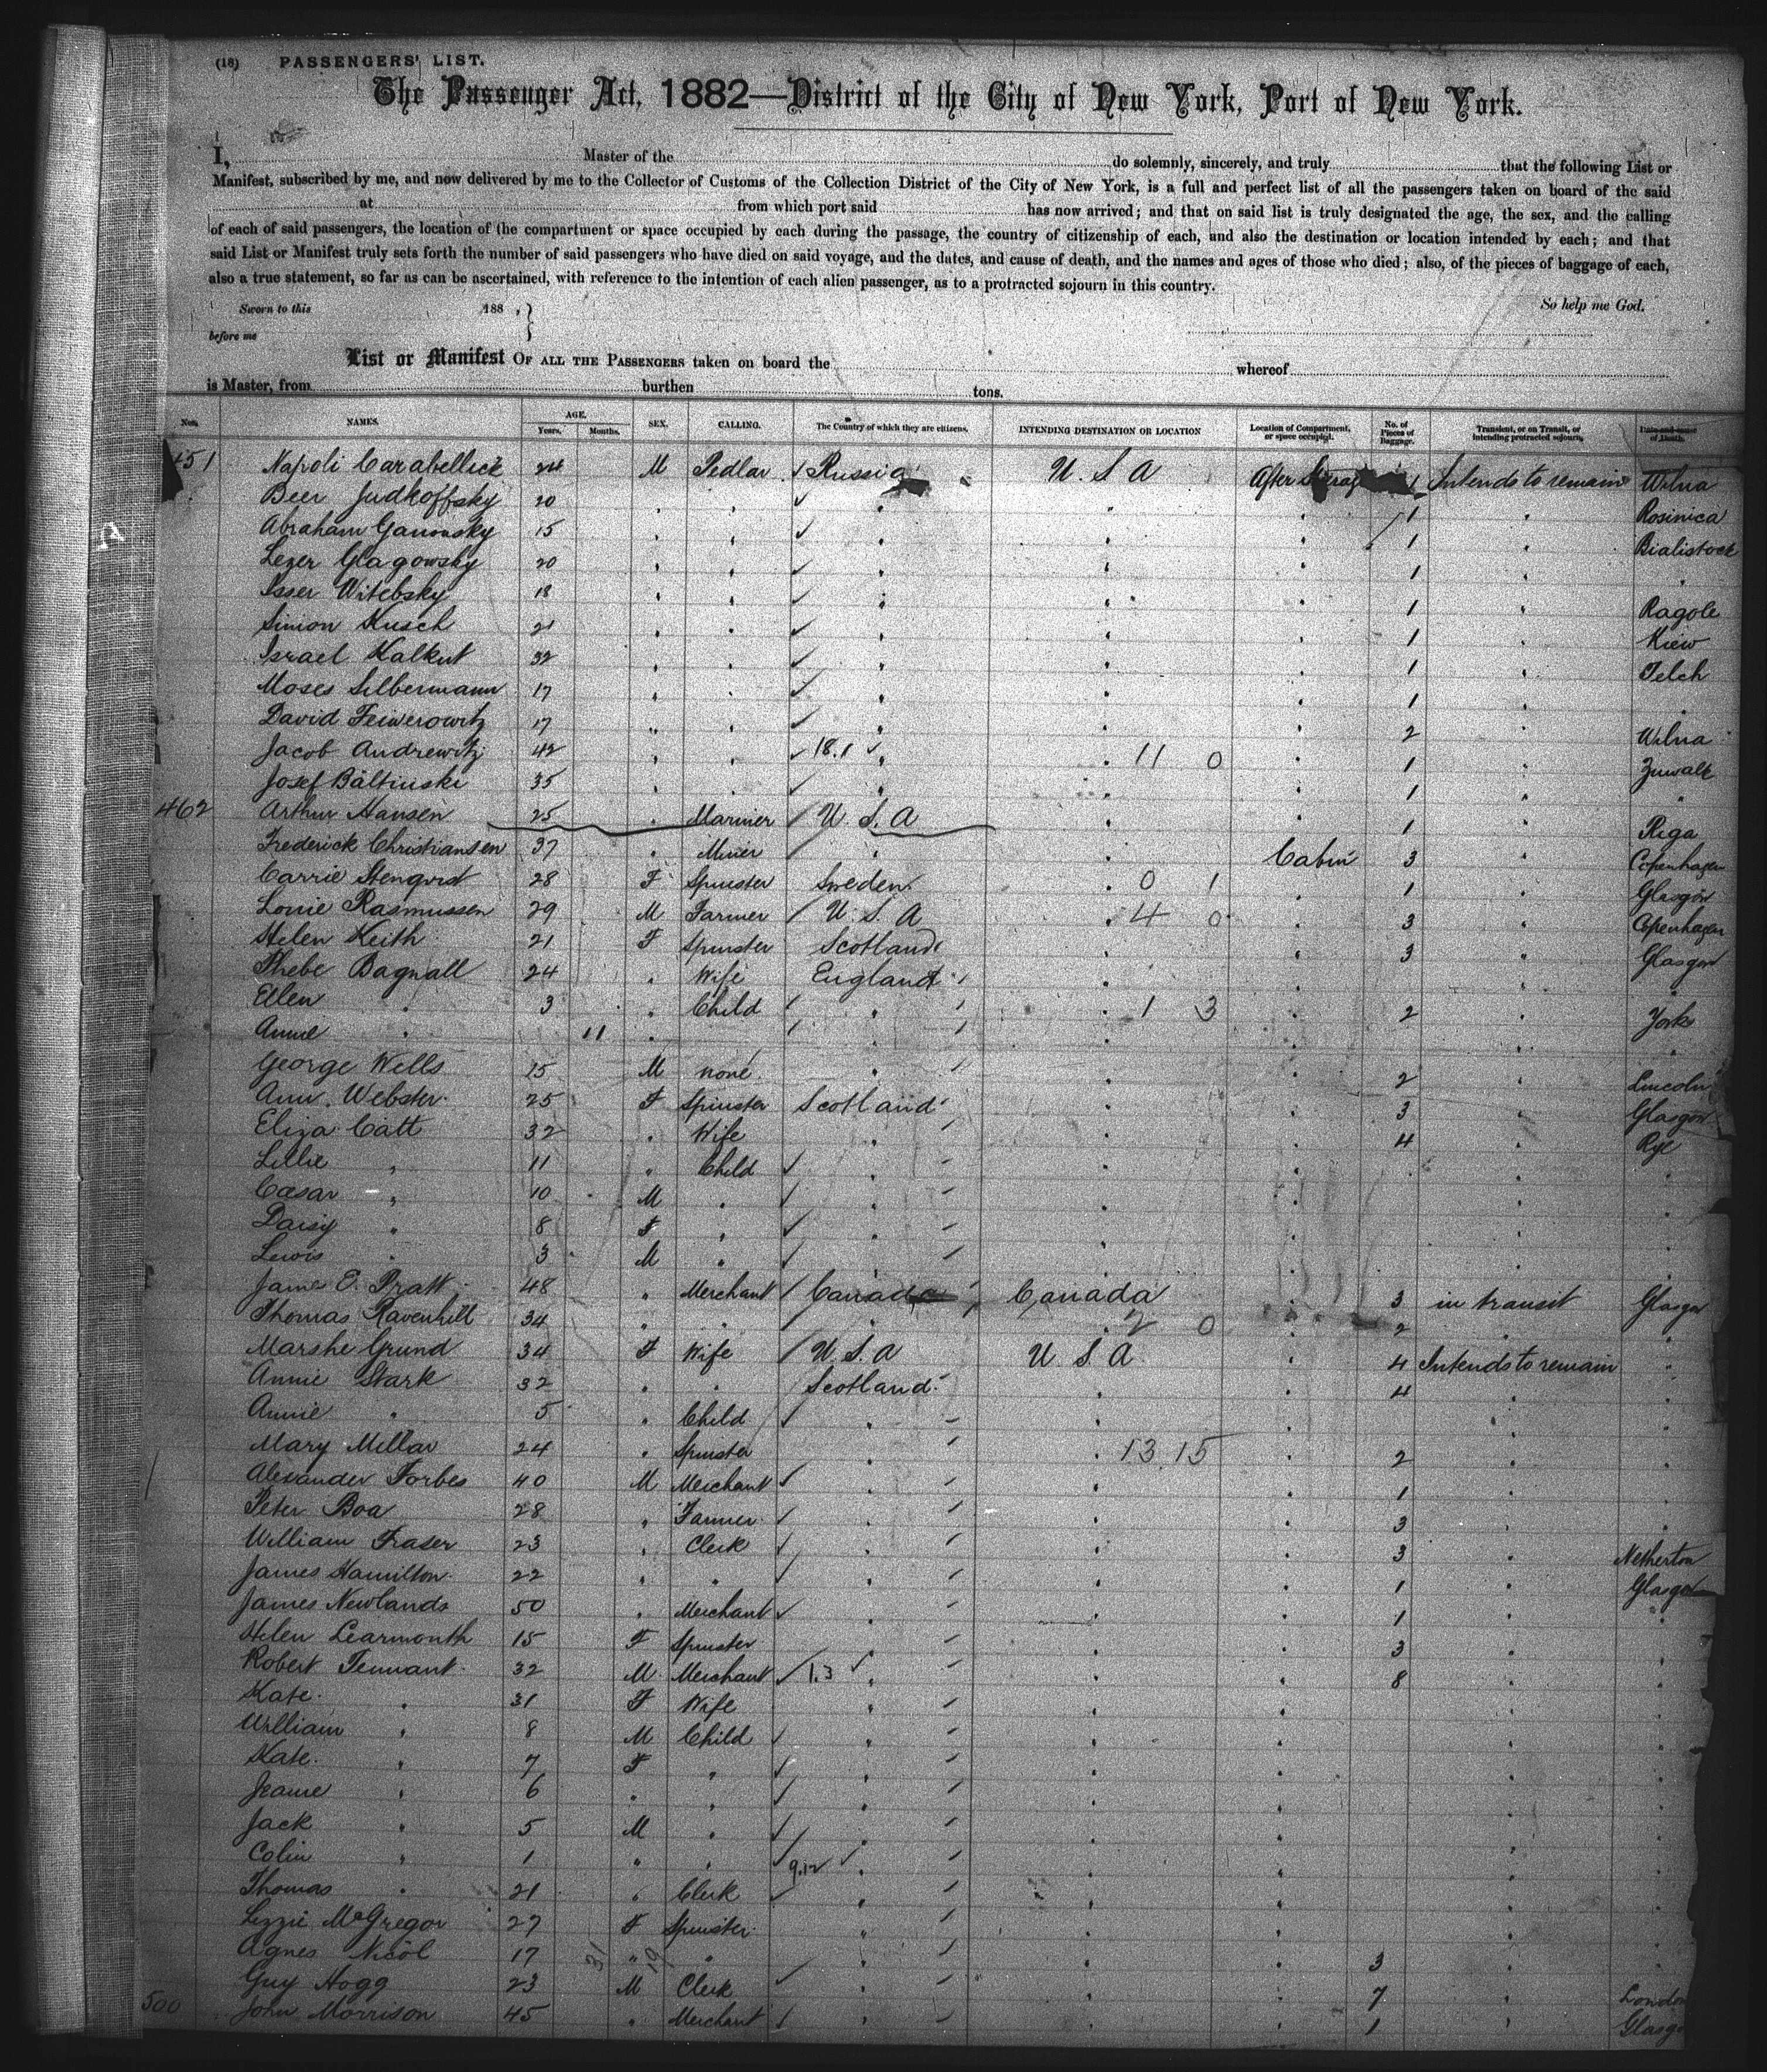 (18) PASSENGERS' LIST.
The Passenger Act, 1882—District of the City of New York, Port of New York.
I, Master of the do solemnly, sincerely, and truly that the following List or
Manifest, subscribed by me, and now delivered by me to the Collector of Customs of the Collection District of the City of New York, is a full and perfect list of all the passengers taken on board of the said
at from which port said has now arrived; and that on said list is truly designated the age, the sex, and the calling
of each of said passengers, the location of the compartment or space occupied by each during the passage, the country of citizenship of each, and also the destination or location intended by each; and that
said List or Manifest truly sets forth the number of said passengers who have died on said voyage, and the dates, and cause of death, and the names and ages of those who died; also, of the pieces of baggage of each,
also a true statement, so far as can be ascertained, with reference to the intention of each alien passenger, as to a protracted sojourn in this country.
Sworn to this 188 , } So help me God.
before me
List or Manifest OF ALL THE PASSENGERS taken on board the whereof
is Master, from burthen tons.
Nos. NAMES. AGE. Years. Months. SEX. CALLING. The Country of which they are citizens. INTENDING DESTINATION OR LOCATION Location of Compartment, or space occupied. No. of Pieces of Baggage. Transient, or on Transit, or Intending protracted sojourn. Date and cause of Death.
451 Napoli Carabellick 24 M Pedlar Russia U. S A After 1 Intends to remain Wilna
Beer Judkoffsky 20 " " " " " 1 " Rosinica
Abraham 15 " " " " " 1 " Bialistock
Lezer Glagowsky 20 " " " " " 1 " "
Isser Witebsky 18 " " " " " 1 " Ragole
Simon Kusch 21 " " " " " 1 " Kiew
Israel Kalkut 32 " " " " " 1 " Telch
Moses Silbermann 17 " " " " " 1 " "
David Feiwerowitz 17 " " " " " 2 " Wilna
Jacob Andrewitz 42 " " 18.1 " " 11 0 " 1 " Zuwalk
Josef Baltinski 35 " " " " " 1 " "
462 Arthur Hansen 25 " Mariner U. S. A " " 1 " Riga
Frederick Christiansen 37 " Miner " " Cabin 3 " Copenhagen
Carrie 28 F Spinster Sweden " 0 1 " 1 " Glasgow
Louie Rasmussen 29 M Farmer U. S. A " 4 0 " 3 " Copenhagen
Helen Keith 21 F Spinster Scotland " " 3 " Glasgow
Phebe Bagnall 24 " Wife England " " "
Ellen " 3 " Child " " 1 3 " 2 " York
Annie " 11 " " " " " "
George Wells 15 M none " " " 2 " Lincoln
Ann Webster 25 F Spinster Scotland " " 3 " Glasgow
Eliza Catt 32 " Wife " " " 4 " Rye
Lillie " 11 " Child " " " " "
Cæsar " 10 M " " " " " "
Daisy " 8 F " " " " " "
Lewis " 3 M " " " " " "
James E. Pratt 48 " Merchant Canada Canada " 3 in transit Glasgow
Thomas Ravenhill 34 " " " " 2 0 " 2 " "
Marshe Grund 34 F Wife U. S. A U S. A " 4 Intends to remain "
Annie Stark 32 " " Scotland " " 4 " "
Annie " 5 " Child " " " " "
Mary Millar 24 " Spinster " " 13.15 " 2 " "
Alexander Forbes 40 M Merchant " " " 1 " "
Peter Boa 28 " Farmer " " " 3 " "
William Fraser 23 " Clerk " " " 3 " Netherton
James Hamilton 22 " " " " " 1 " Glasgow
James Newlands 50 " Merchant " " " 1 " "
Helen Learmonth 15 F Spinster " " " 3 " "
Robert Tennant 32 M Merchant 1.3 " " " 8 " "
Kate " 31 F Wife " " " " "
William " 8 M Child " " " " "
Kate " 7 F " " " " " "
Jeanie " 6 " " " " " " "
Jack " 5 M " " " " " "
Colin " 1 " " 9.12 " " " " "
Thomas " 21 " Clerk " " " " "
Lizzie McGregor 27 F Spinster " " " " "
Agnes Nicol 17 31 " 19 " " " " 3 " "
Guy Hogg 23 M Clerk " " " 7 " London
500 John Morrison 45 " Merchant " " " 1 " Glasgow